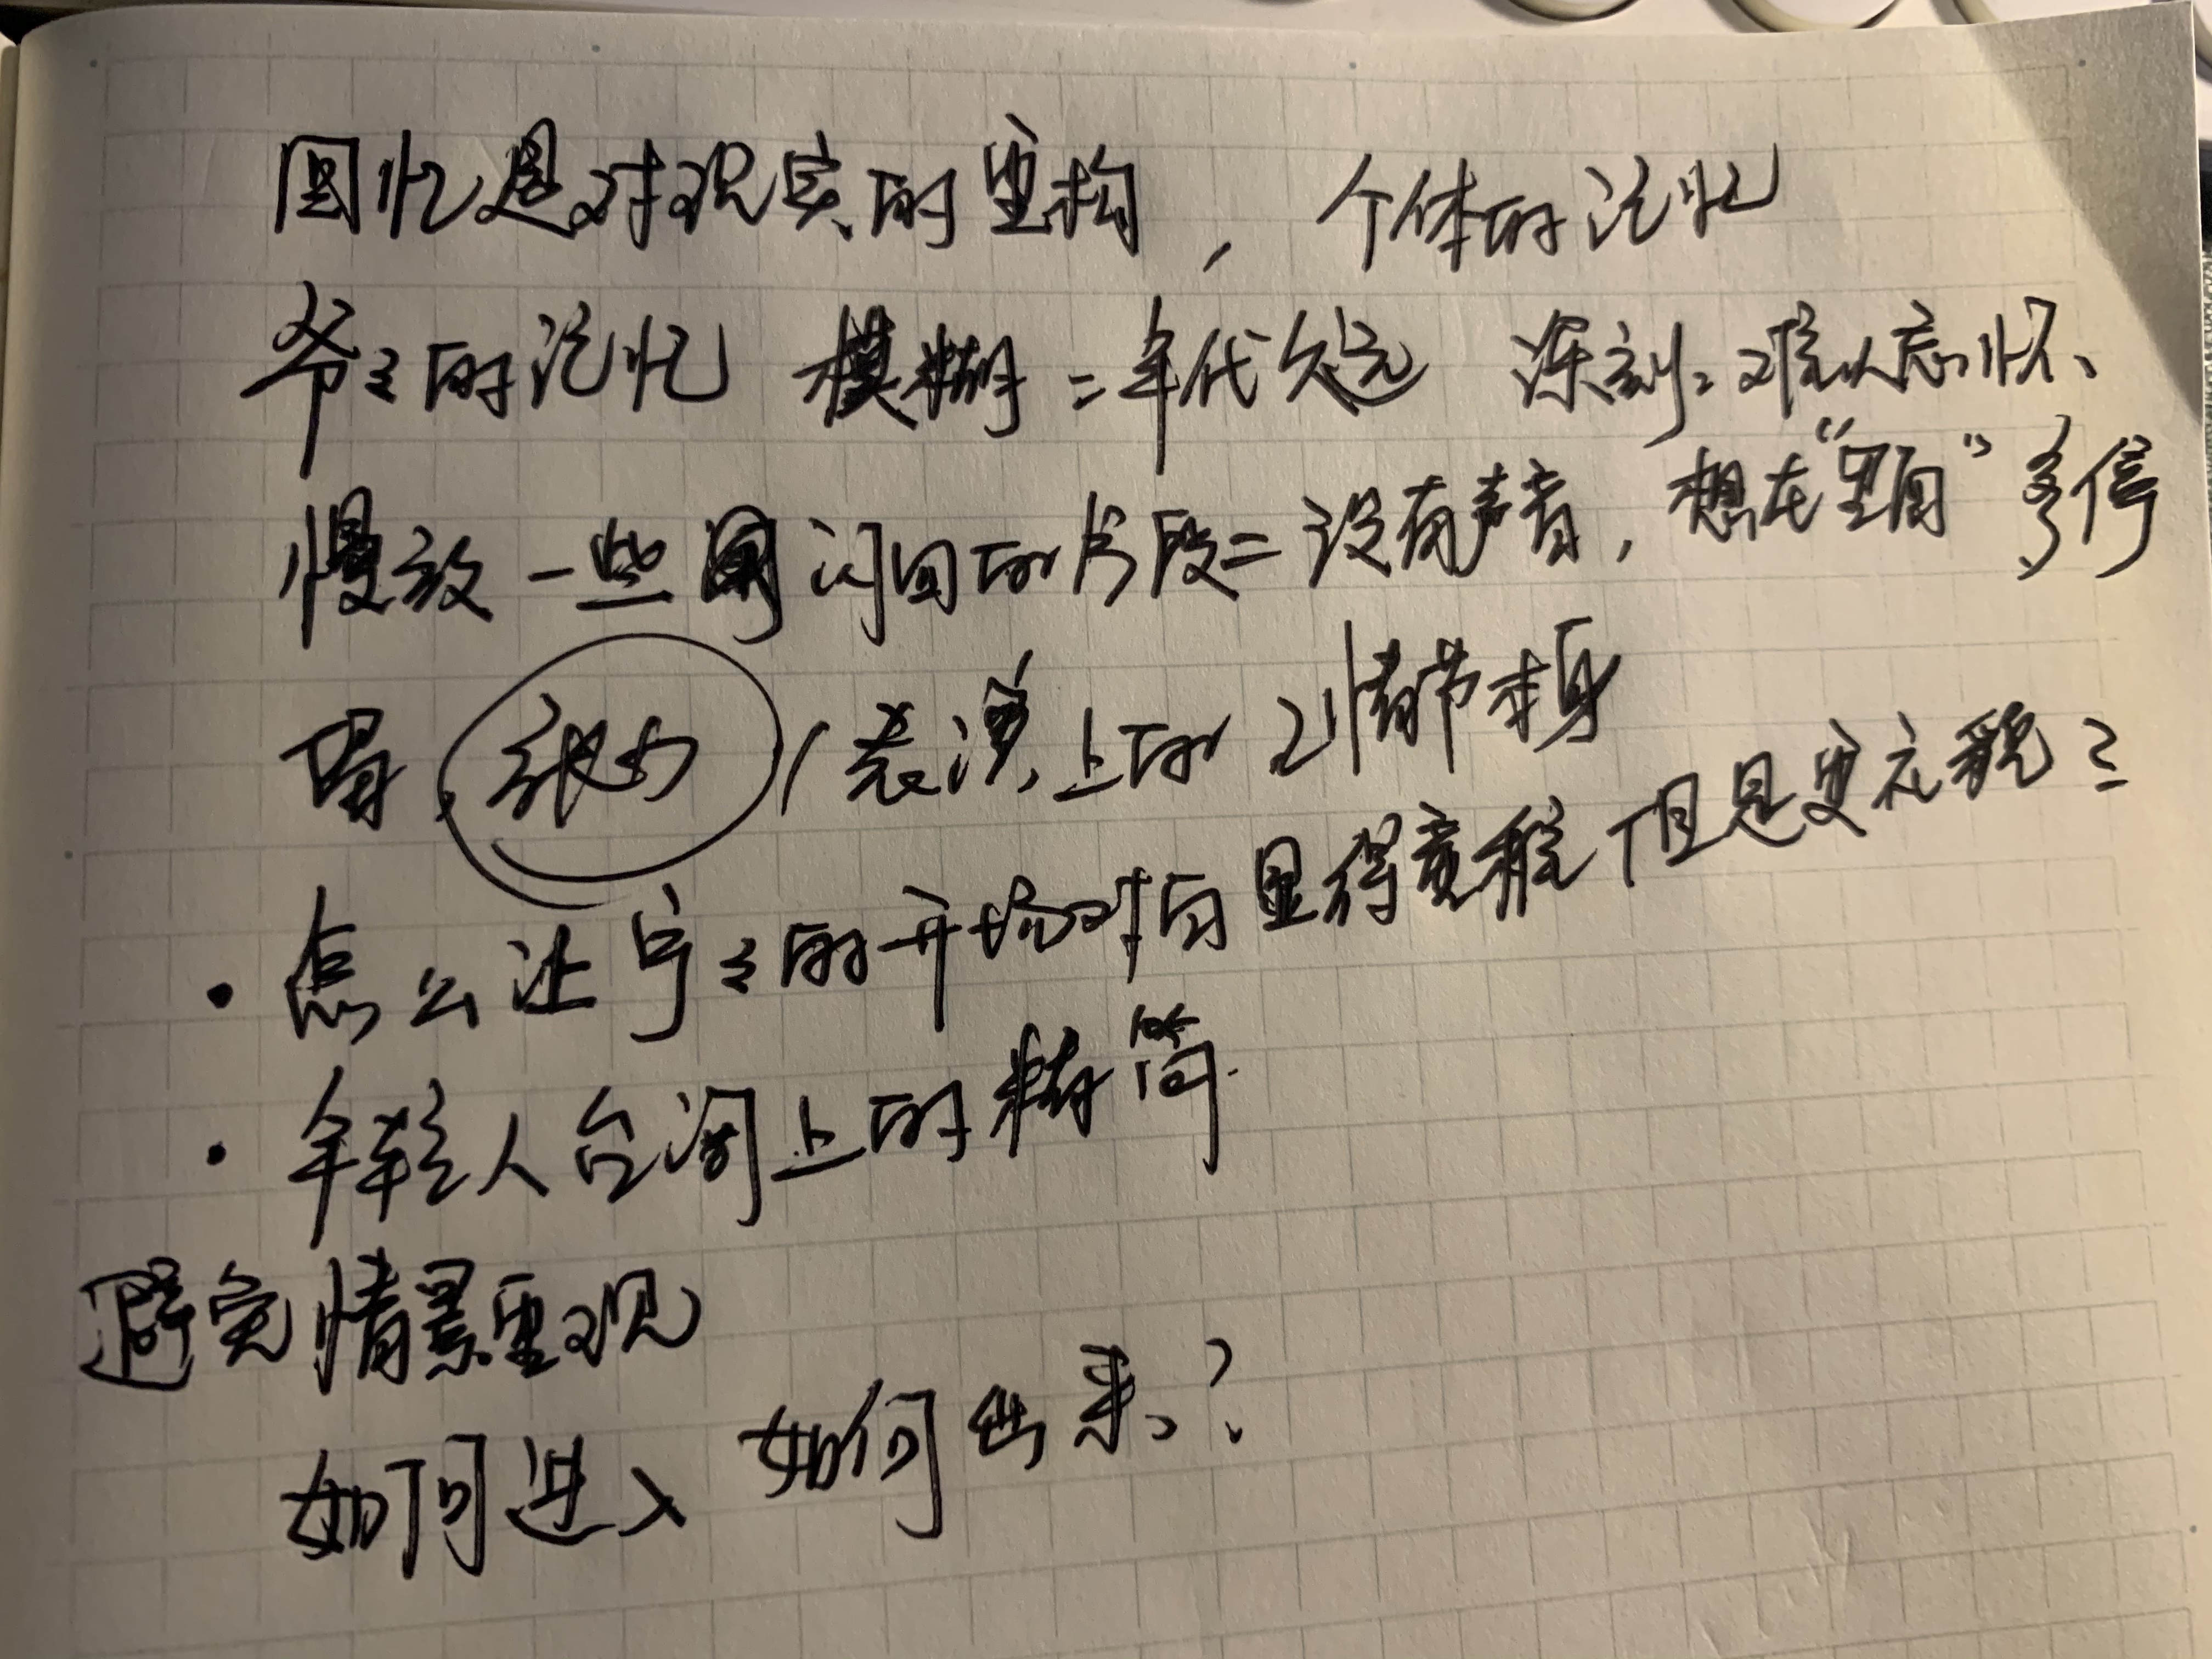 回忆是对现实的重构，个体的记忆
爷爷的记忆 模糊=年代久远 深刻=难以忘怀、
慢放一些闪回的片段=没有声音，想在“里面”多停
留，张力/表演上的 2)情节本身
·怎么让宁宁的开场对白显得意犹但是要礼貌？
·年轻人台词上的精简.
避免情景重现
如何进入 如何出来？